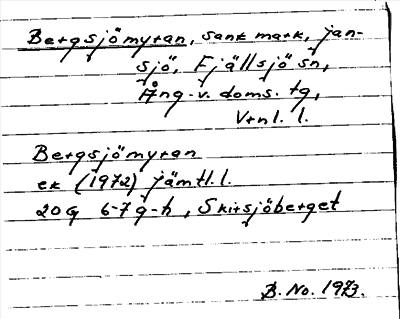 Bergsjömyran, sank mark, Jan-
sjö, Fjällsjö sn,
Ång. v. doms. tg,
Vrnl. l.
Bergsjömyran
ek (1972) Jämtl. l.
20G 6-7 g-h, Skirsjöberget
B. No. 1973.